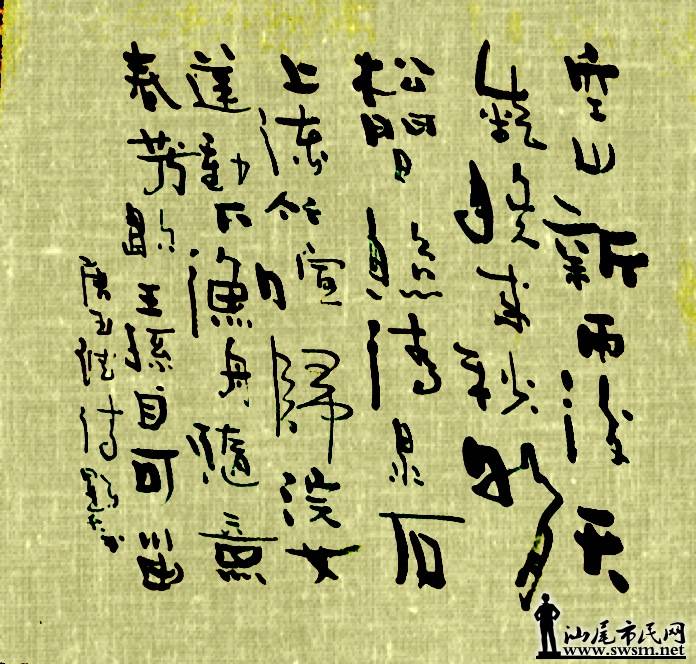 空山新雨後天
氣晚來秋明
松間照清泉石
上流竹喧歸浣女
蓮動下漁舟隨意
春芳歇王孫自可留
唐王維詩
汕尾市民网
www.swsm.net